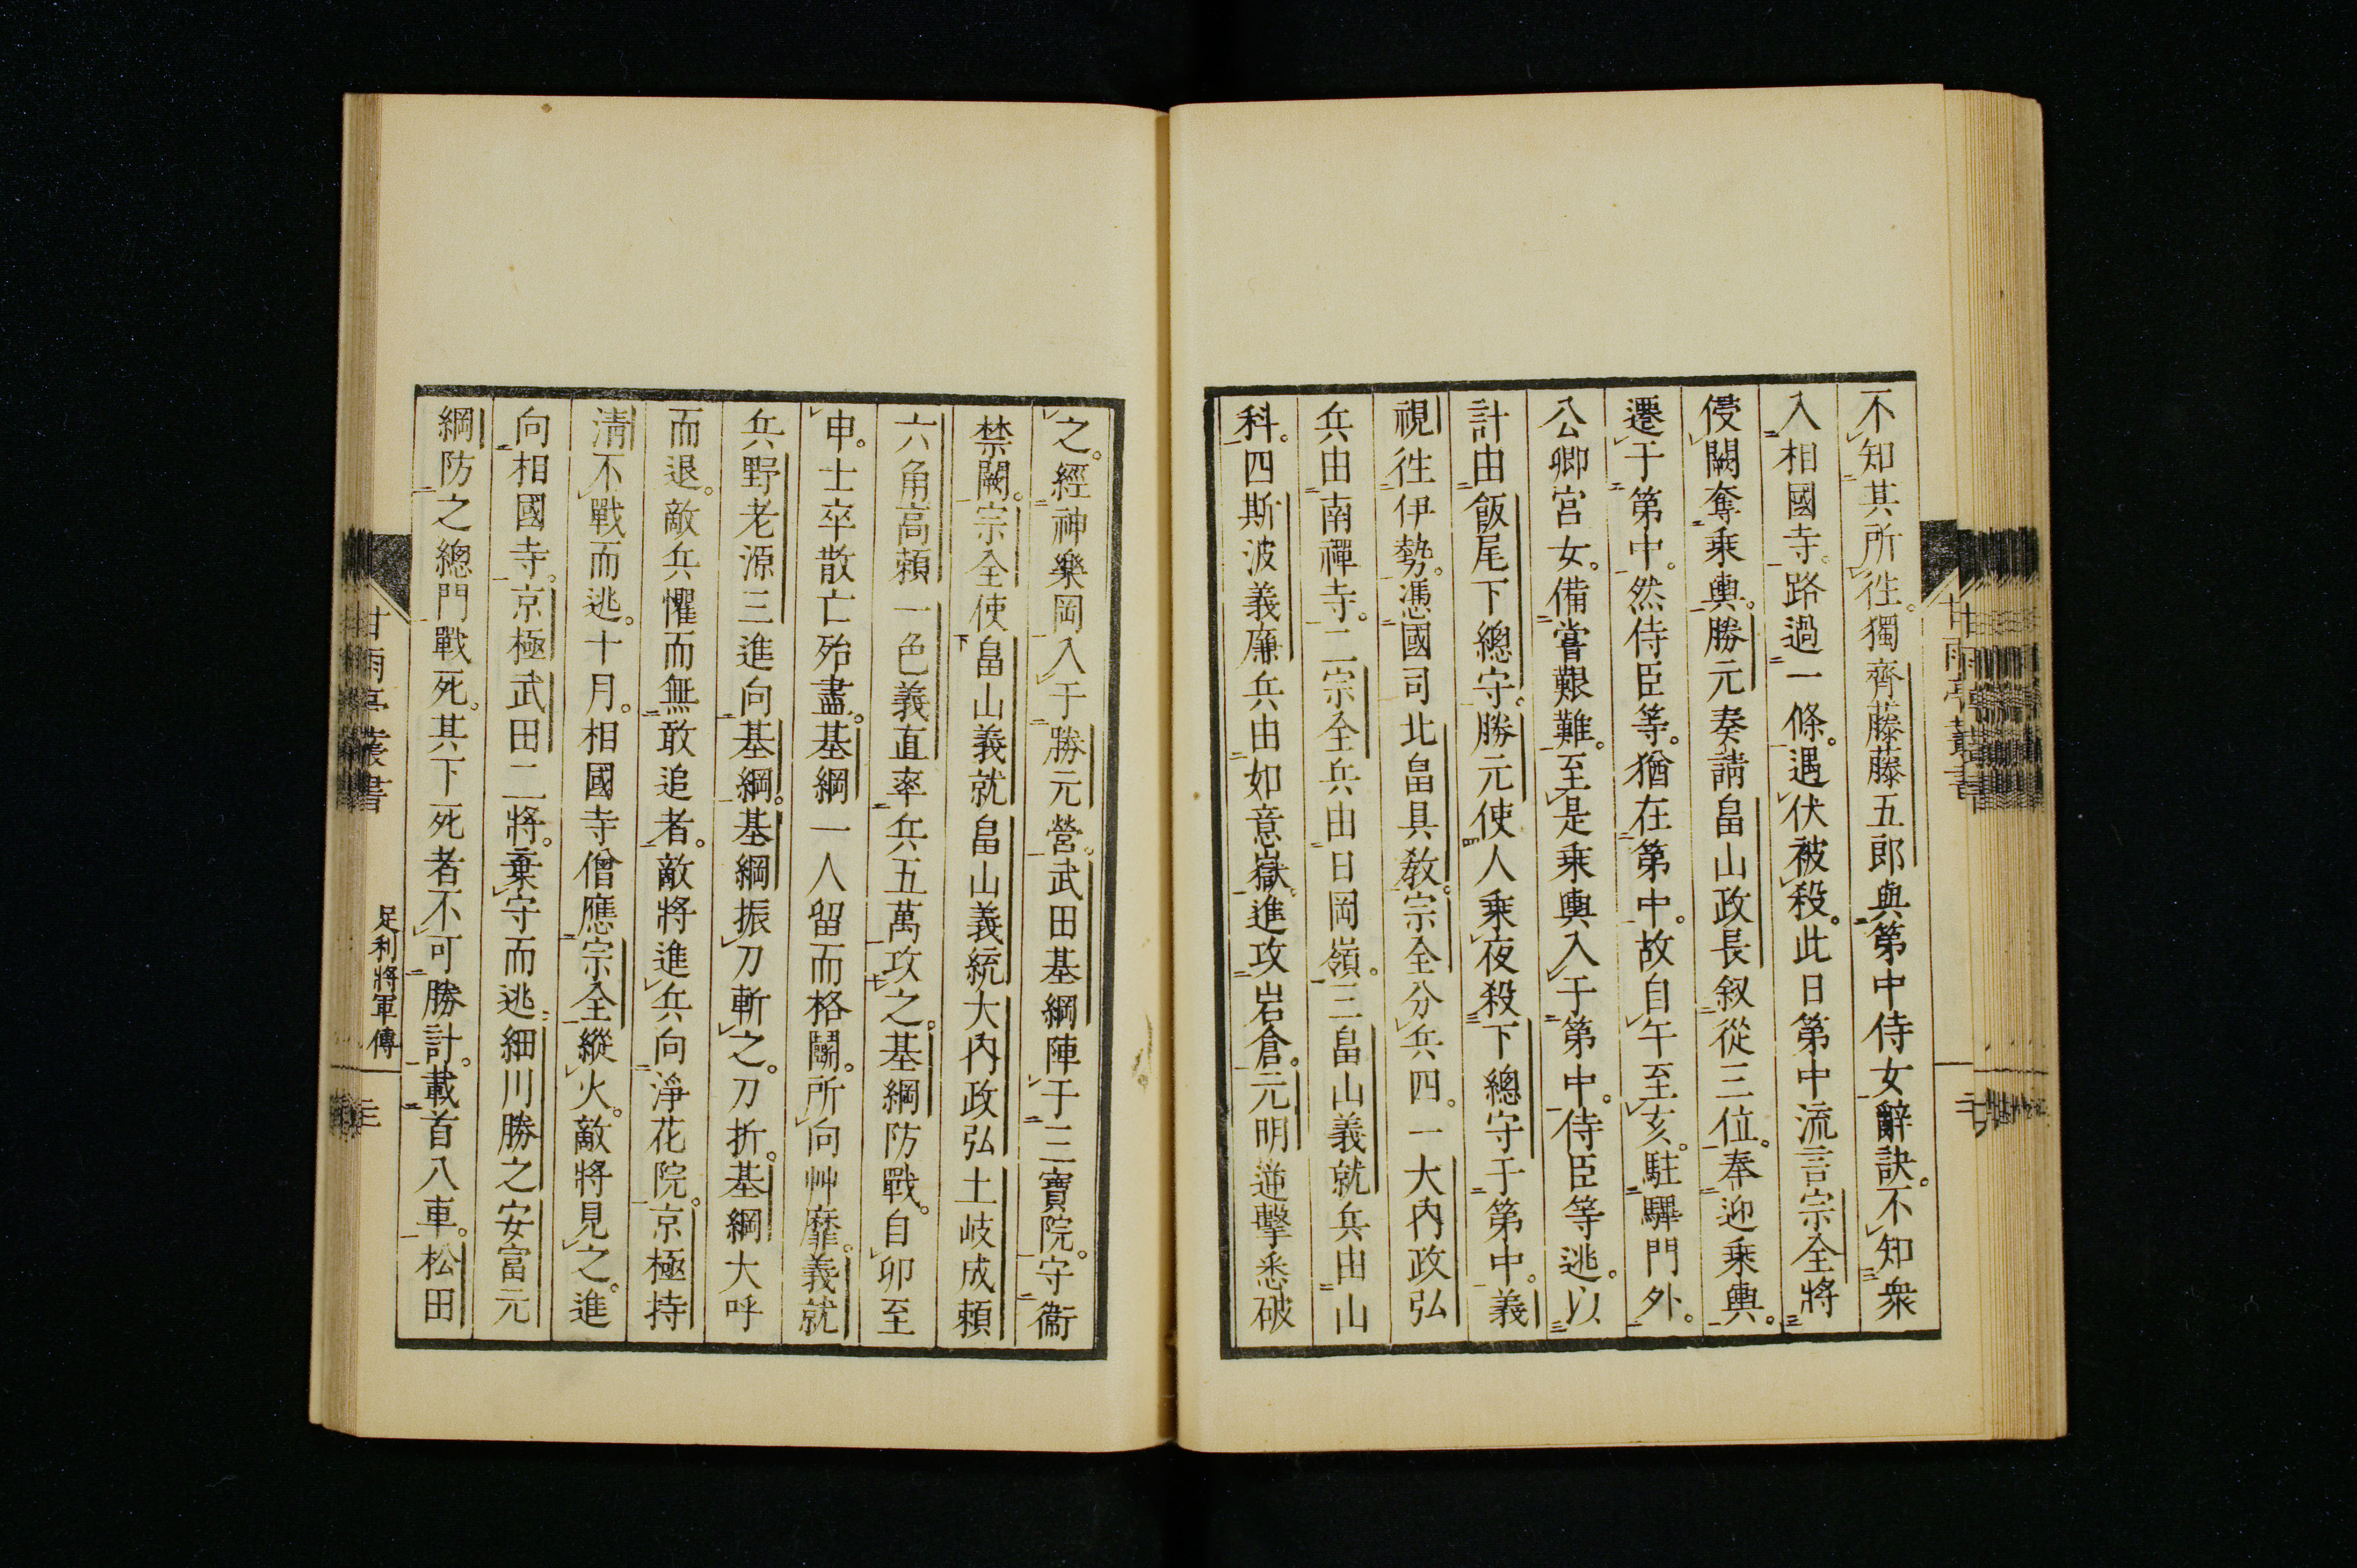 不知其所徃。獨齊藤藤五郎與第中侍女辭訣。不知衆
入相國寺。路過一條。遇伏被殺。此日第中流言宗全將
侵闕奪乘輿。勝元奏請畠山政長叙從三位。奉迎乘輿。
遷于第中。然侍臣等。猶在第中。故自午至亥。駐驆門外。
公卿宮女。備嘗艱難。至是乘輿入于第中。侍臣等逃。以
計由飯尾下總守。勝元使人乘夜殺下總守于第中。義
視徃伊勢。憑國司北畠具敎。宗全分兵四。一大內政弘
兵由南禪寺。二宗全兵由日岡嶺。三畠山義就兵由山
科。四斯波義廉兵由如意嶽。進攻岩倉。元明逆擊悉破
之。經神樂岡入于勝元營。武田基綱陣于三寶院。守衞
禁闕。宗全使畠山義就畠山義統大內政弘土岐成頼
六角高頼一色義直率兵五萬攻之。基綱防戰。自卯至
申。士卒散亡殆盡。基綱一人留而格鬭。所向艸靡。義就
兵野老源三進向基綱。基綱振刀斬之。刀折。基綱大呼
而退。敵兵懼而無敢追者。敵將進兵向淨花院。京極持
淸不戰而逃。十月。相國寺僧應宗全縱火。敵將見之。進
向相國寺。京極武田二將。棄守而逃。細川勝之安富元
綱防之總門戰死。其下死者不可勝計。載首八車。松田
甘雨亭叢書
足利將軍傳